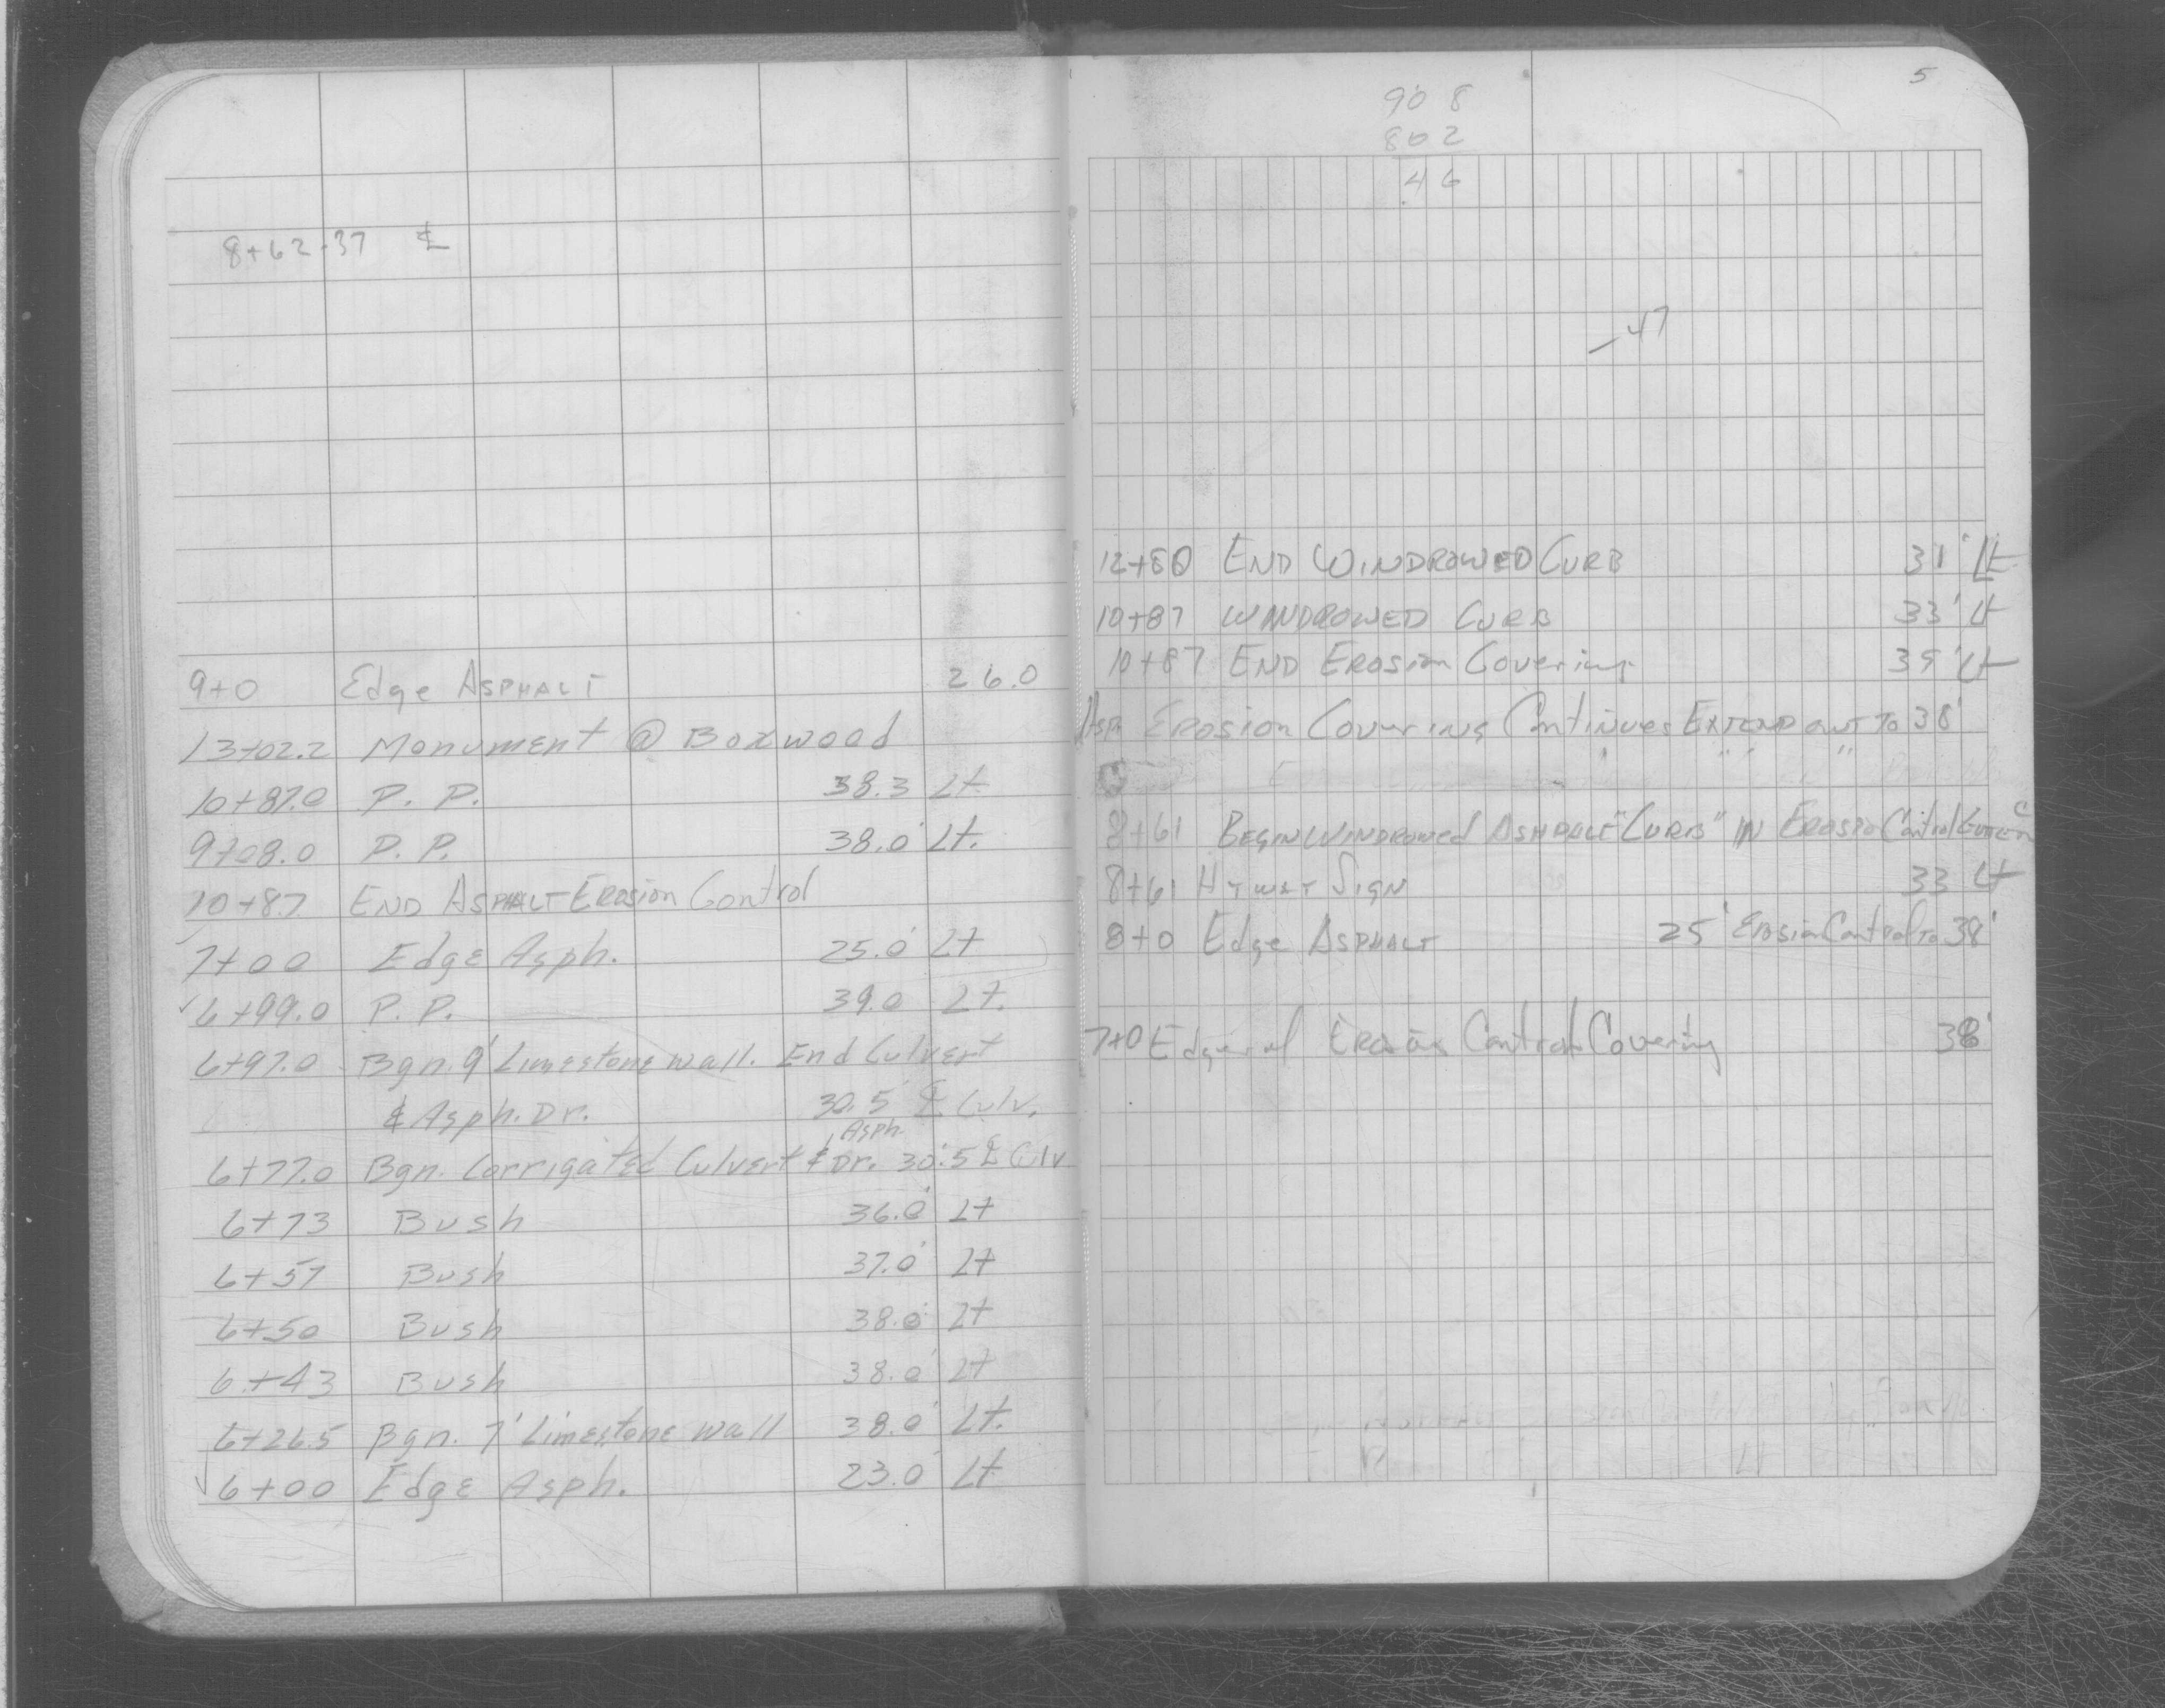 8+62.37 ℄
9+0 Edge ASPHALT 26.0
13+02.2 Monument @ Boxwood
10+87.0 P. P. 38.3 Lt
9+08.0 P. P. 38.0' Lt.
10+87 END ASPHALT EROSion Control
7+00 Edge Asph. 25.0' Lt
✓ 6+99.0 P. P. 39.0 Lt.
6+97.0 Bgn. 9' Limestone wall. End Culvert
& Asph. Dr. 30.5' ℄ Culv.
Asph.
6+77.0 Bgn. Corrigated Culvert & Dr. 30.5 ℄ Culv
6+73 Bush 36.0' Lt
6+57 Bush 37.0' Lt
6+50 Bush 38.0' Lt
6+43 Bush 38.0' Lt
6+26.5 Bgn. 7' Limestone wall 38.0' Lt.
✓ 6+00 Edge Asph. 23.0' Lt
5
90 8
80 2
4 6
47
12+80 END WINDROWED CURB 31' Lt
10+87 WINDROWED CURB 33' Lt
10+87 END EROSion Covering 35' Lt
Asph EROSion Covering Continues EXTEND OUT TO 38'
8+61 BEGIN WINDROWED ASHPALT "CURB" IN EROSIO Control
8+61 SIGN 33 Lt
8+0 Edge ASPHALT 25' Erosion Control To 38'
7+0 Edge of Erosion Control Covering 38'